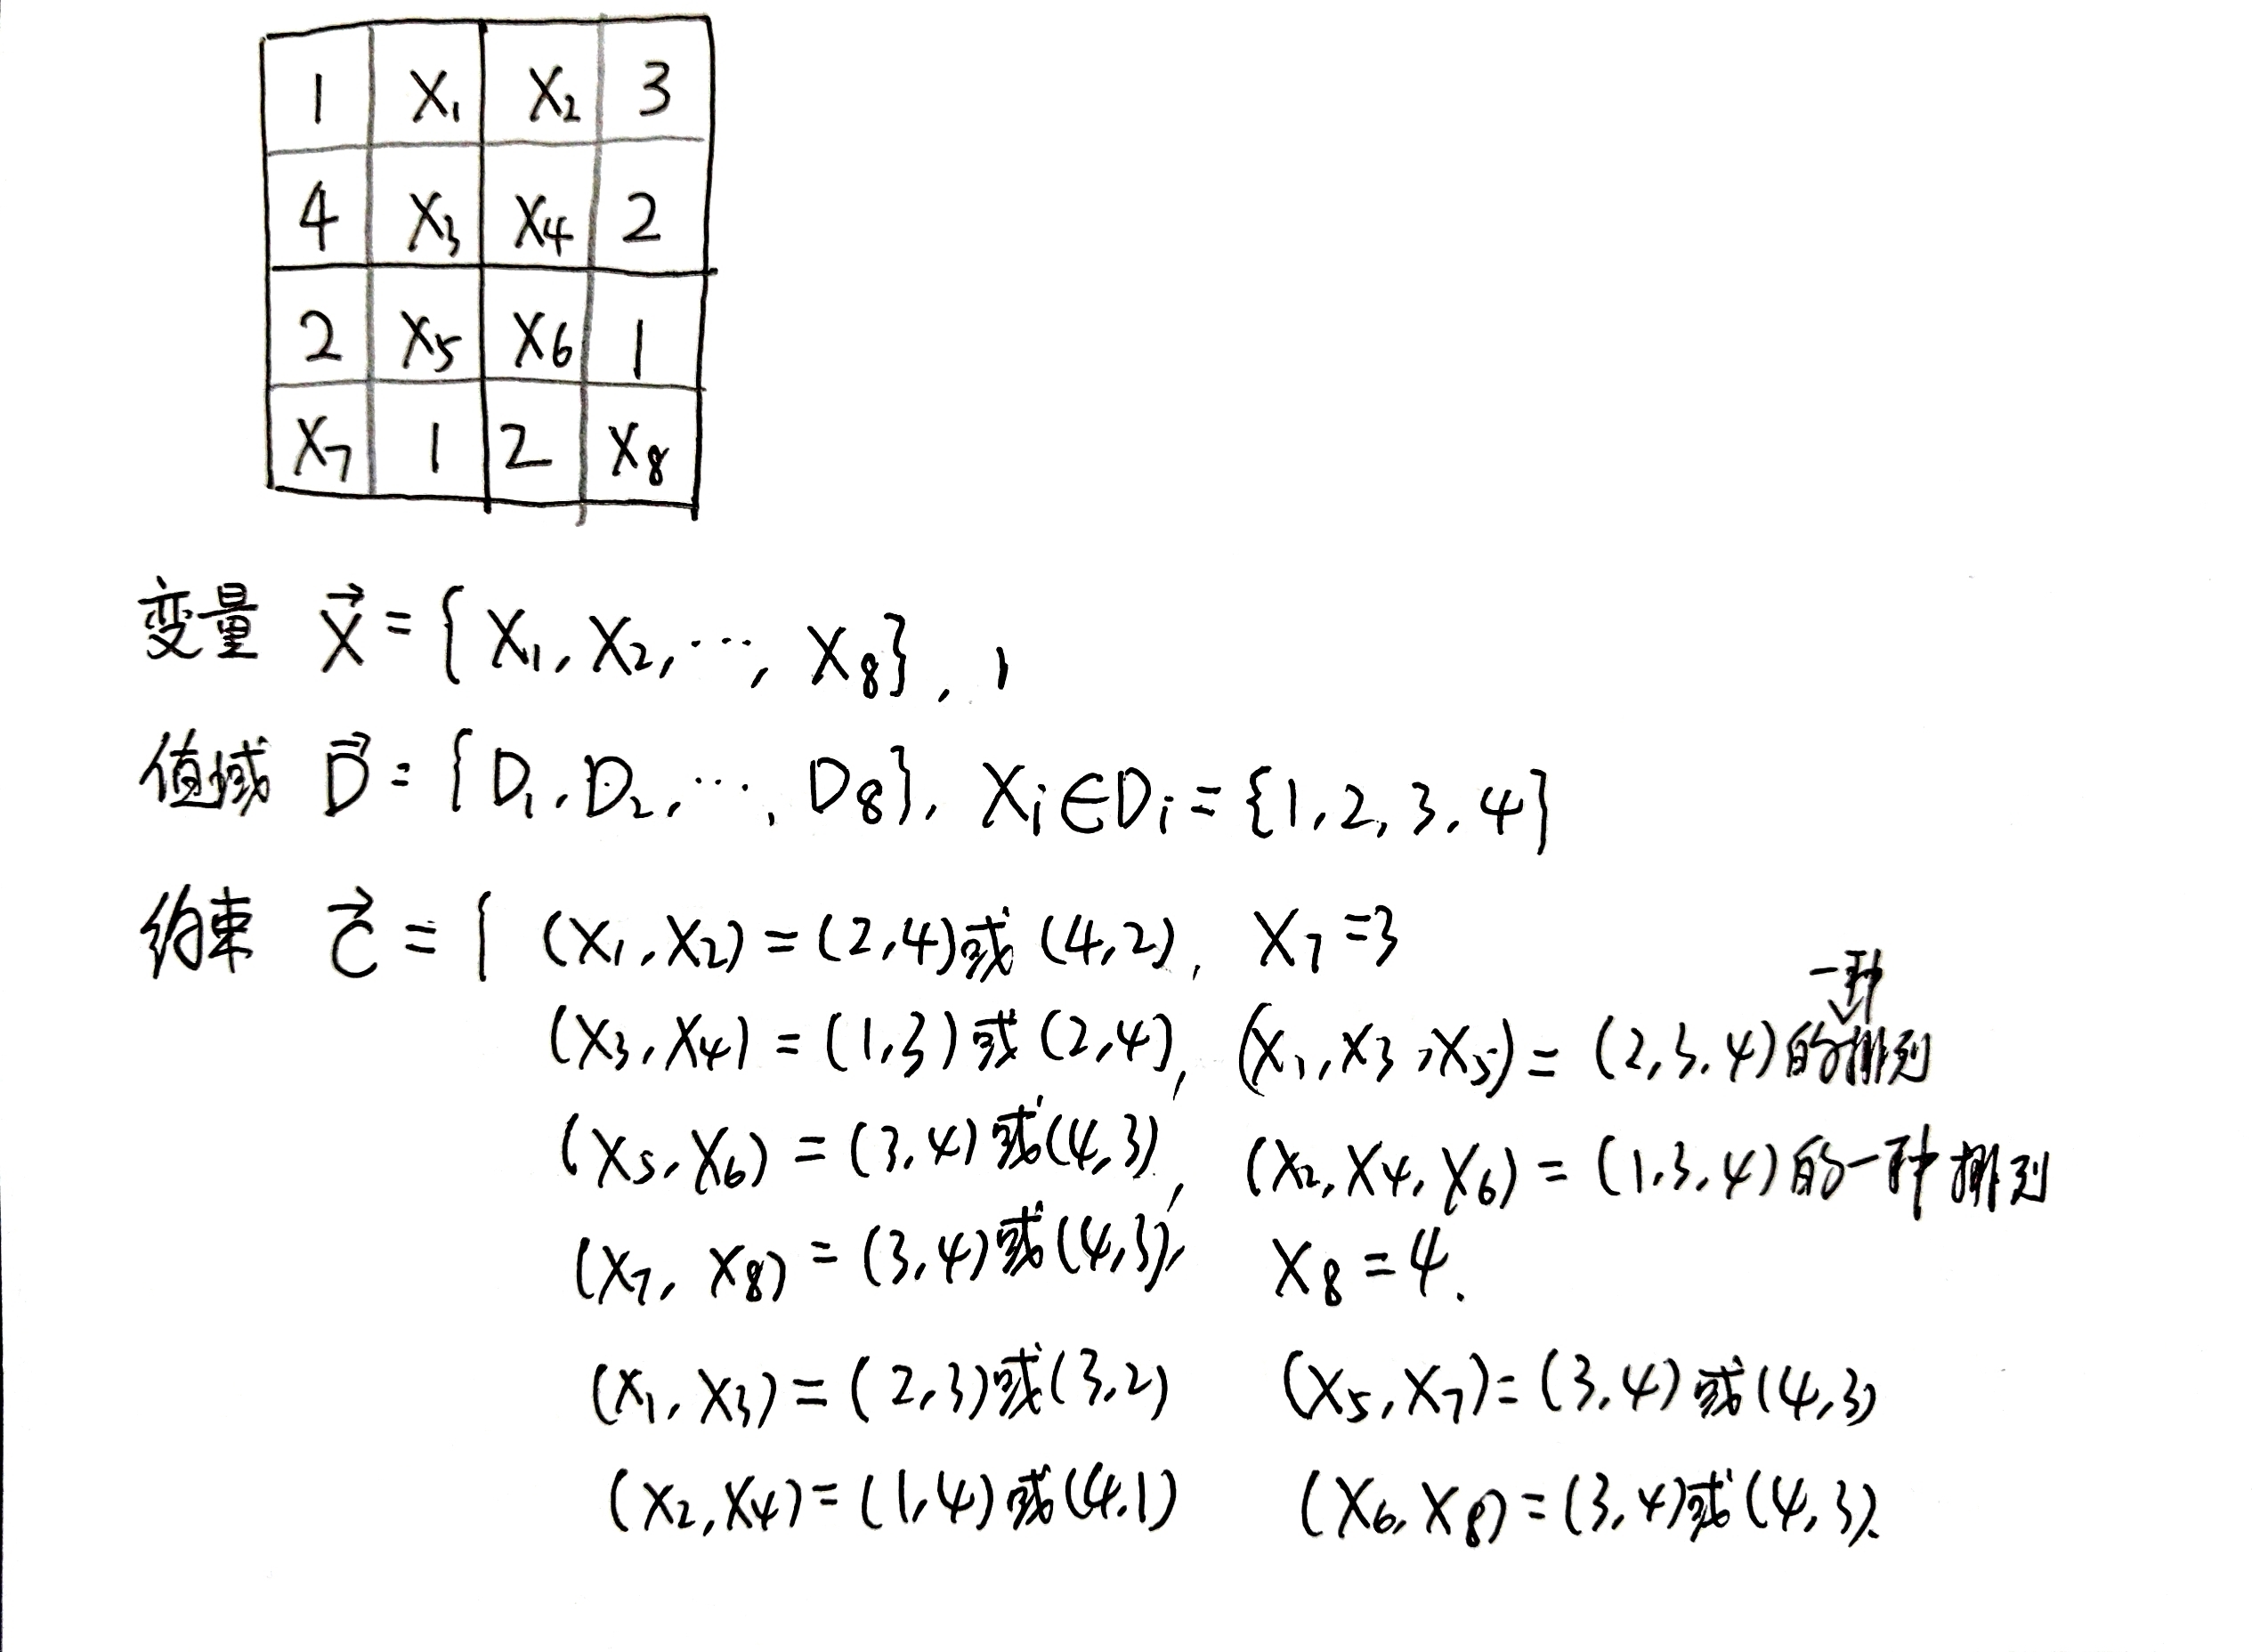 1 X₁ X₂ 3
4 X₃ X₄ 2
2 X₅ X₆ 1
X₇ 1 2 X₈
变量 X⃗ = { X₁, X₂, ⋯, X₈},
值域 D⃗ = {D₁, D₂, ⋯, D₈}, Xᵢ∈Dᵢ = {1, 2, 3, 4}
约束 C⃗ = { (X₁, X₂) = (2,4)或(4,2), X₇=3
(X₃, X₄) = (1,3)或(2,4), (X₁, X₃, X₅) = (2,3,4)的一种排列
(X₅, X₆) = (3,4)或(4,3), (X₂, X₄, X₆) = (1,3,4)的一种排列
(X₇, X₈) = (3,4)或(4,3), X₈=4.
(X₁, X₃) = (2,3)或(3,2) (X₅, X₇) = (3,4)或(4,3)
(X₂, X₄) = (1,4)或(4,1) (X₆, X₈) = (3,4)或(4,3).